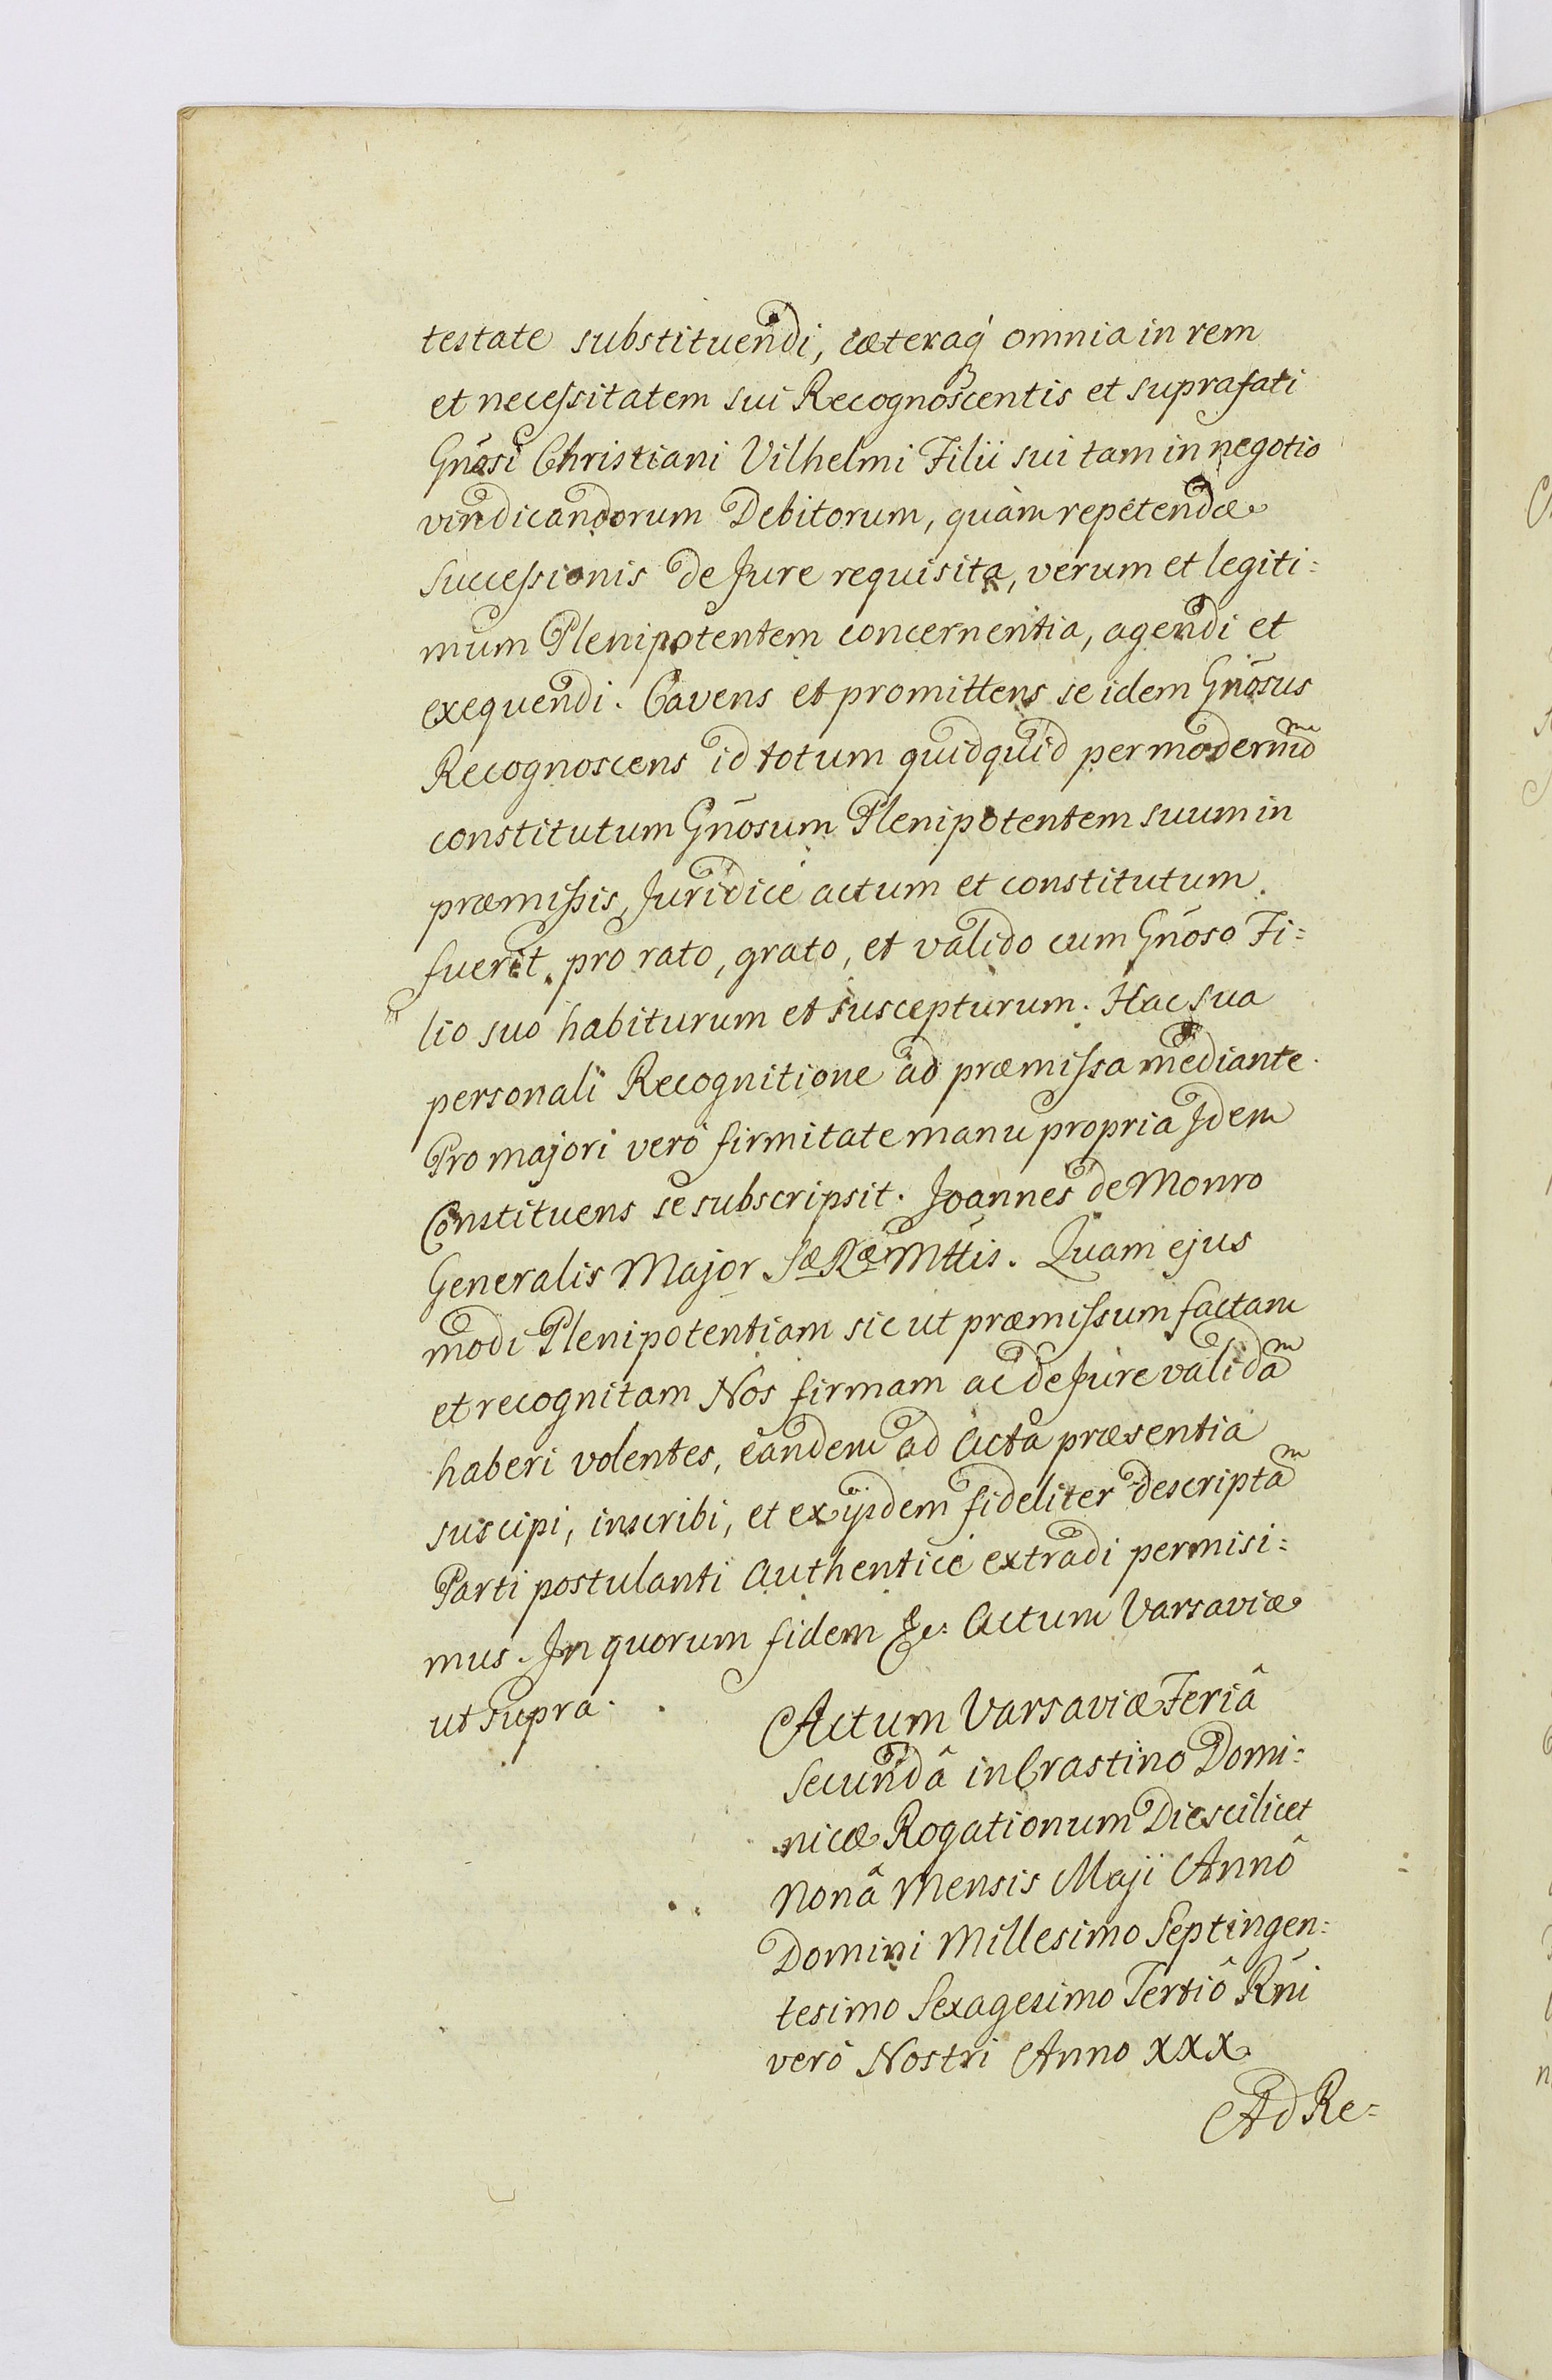 testate substituendi, cæteraq́ omnia in rem
et necessitatem sui Recognoscentis et suprafati
Gn̄osi Christiani Vilhelmi Filii sui tam in negotio
vindicandorum Debitorum, quàm repetendæ
successionis de Jure requisita, verum et legiti:
mum Plenipotentem concernentia, agendi et
exequendi. Cavens et promittens se idem Gn̄osus
Recognoscens id totum quidquid per modernū
constitutum Gn̄osum Plenipotentem suum in
præmissis, Juridicè actum et constitutum
fuerit, pro rato, grato, et valido cum Gn̄oso Fi:
lio suo habiturum et suscepturum. Hac sua
personali Recognitione ad præmissa mediante.
Pro majori verò firmitate manu propria Idem
Constituens se subscripsit. Joannes de Monro
Generalis Major Sæ Ræ Mttis. Quam ejus
modi Plenipotentiam sic ut præmissum factam
et recognitam Nos firmam ac de Jure validaᵐ
haberi volentes, eandem ad Acta præsentia
suscipi, inscribi, et ex ijsdem fideliter descriptaᵐ
Parti postulanti Authenticè extradi permisi:
mus. In quorum fidem &c: Actum Varsaviæ
ut supra.
Actum Varsaviæ Feriâ
Secundâ in Crastino Domi:
nicæ Rogationum Die scilicet
Nonâ Mensis Maji Annô
Domini Millesimo Septingen:
tesimo Sexagesimo Tertiô Rn̄i
verò Nostri Anno XXX
Ad Re: